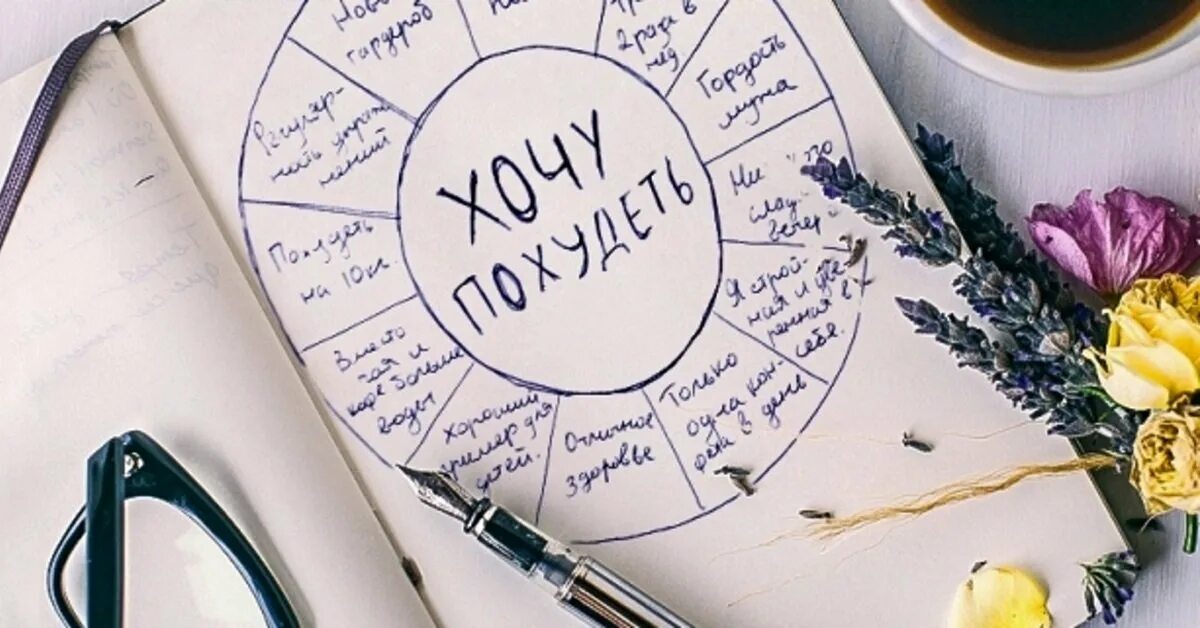 ХОЧУ
ПОХУДЕТЬ
гардероб
2 раза в
нед
Гордость
мужа
Ни
вечер
Я строй-
ная и уве
ренная в
себе.
Только
одна кон-
фета в день
Отличное
здоровье
хороший
пример для
детей.
Вместо
чая и
кофе больше
воды
Похудеть
на 10кг.
Регуляр-
ность упраж
нений